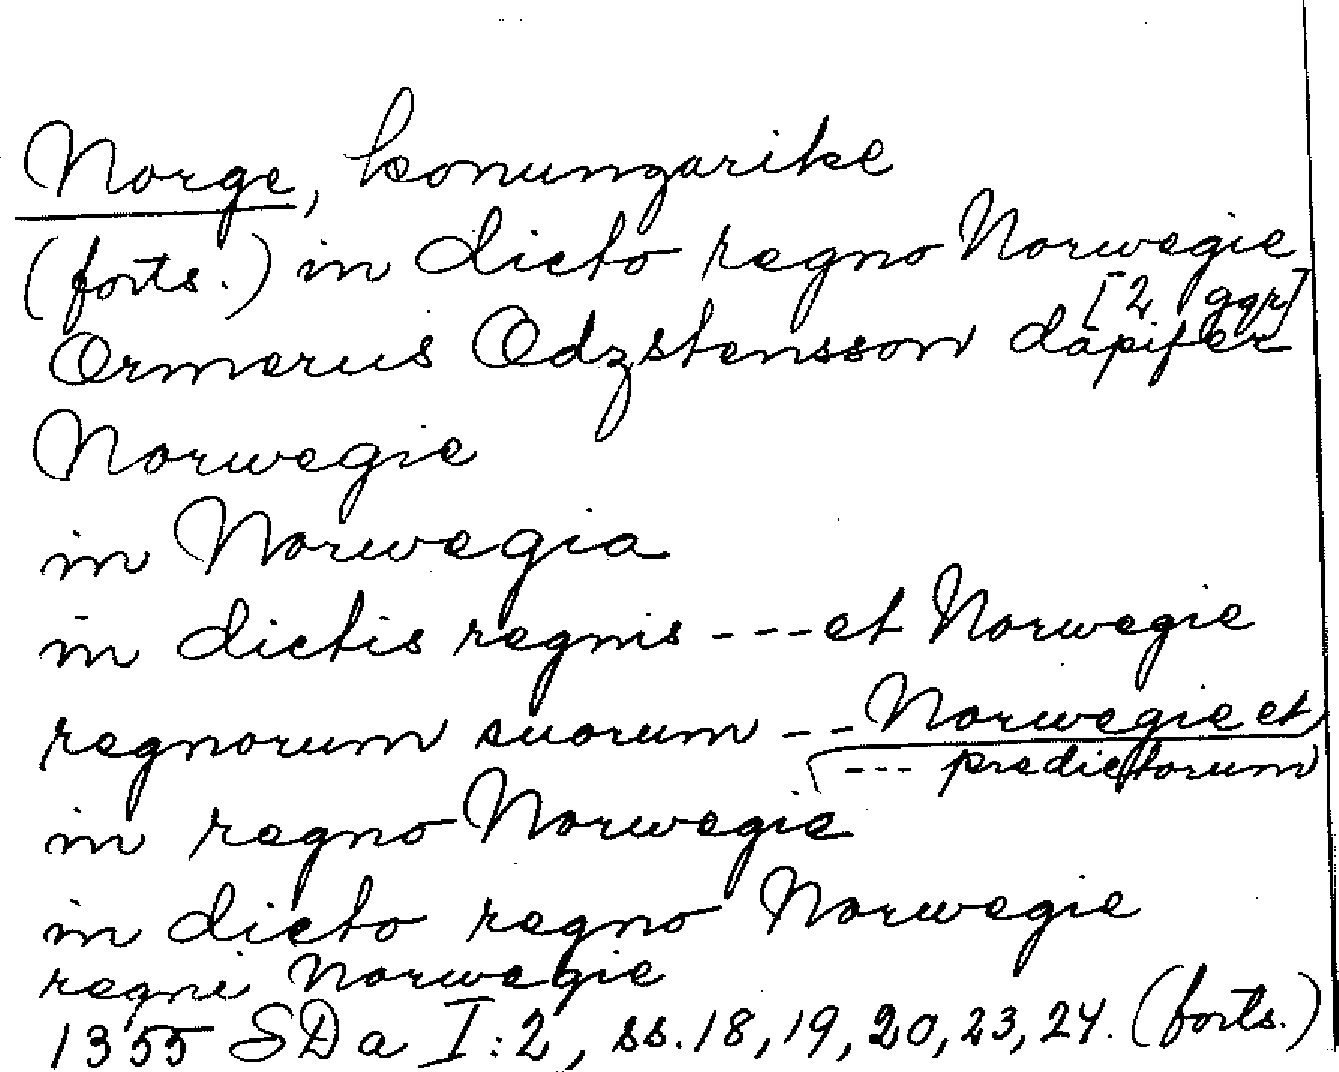 Norge, konungarike
(forts.) in dicto regno Norwegie
[2 ggr]
Ormerus Odzstensson dapifer
Norwegie
in Norwegia
in dictis regnis --- et Norwegie
regnorum suorum -- Norwegie et
--- predictorum
in regno Norwegie
in dicto regno Norwegie
regni Norwegie
1355 SDa I:2, ss. 18, 19, 20, 23, 24. (forts.)